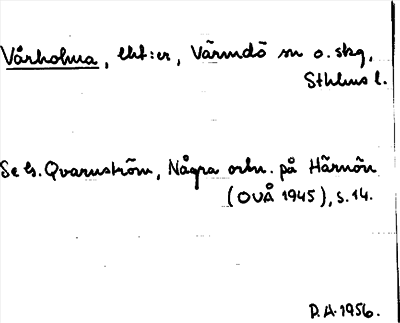 Vårholma, lht:er, Värmdö sn o. skg,
Sthlms l.
Se G. Qvarnström, Några ortn. på Härnön
(OUÅ 1945), s. 14.
D.A. 1956.